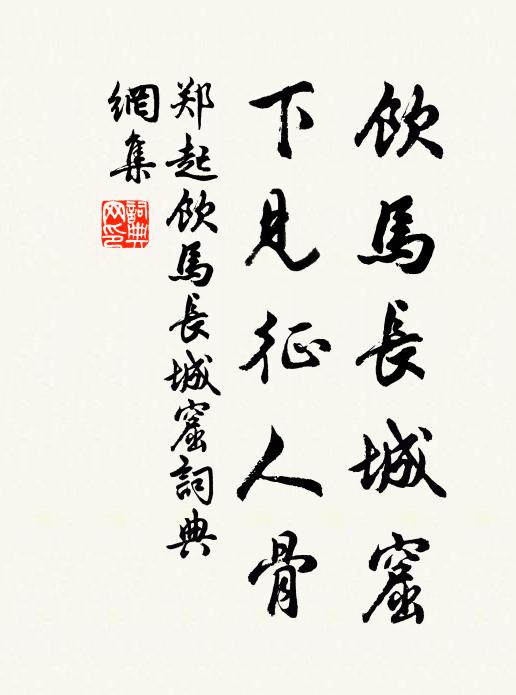 飲馬長城窟
下見征人骨
郑起飲馬長城窟詞典
網集
詞典網印